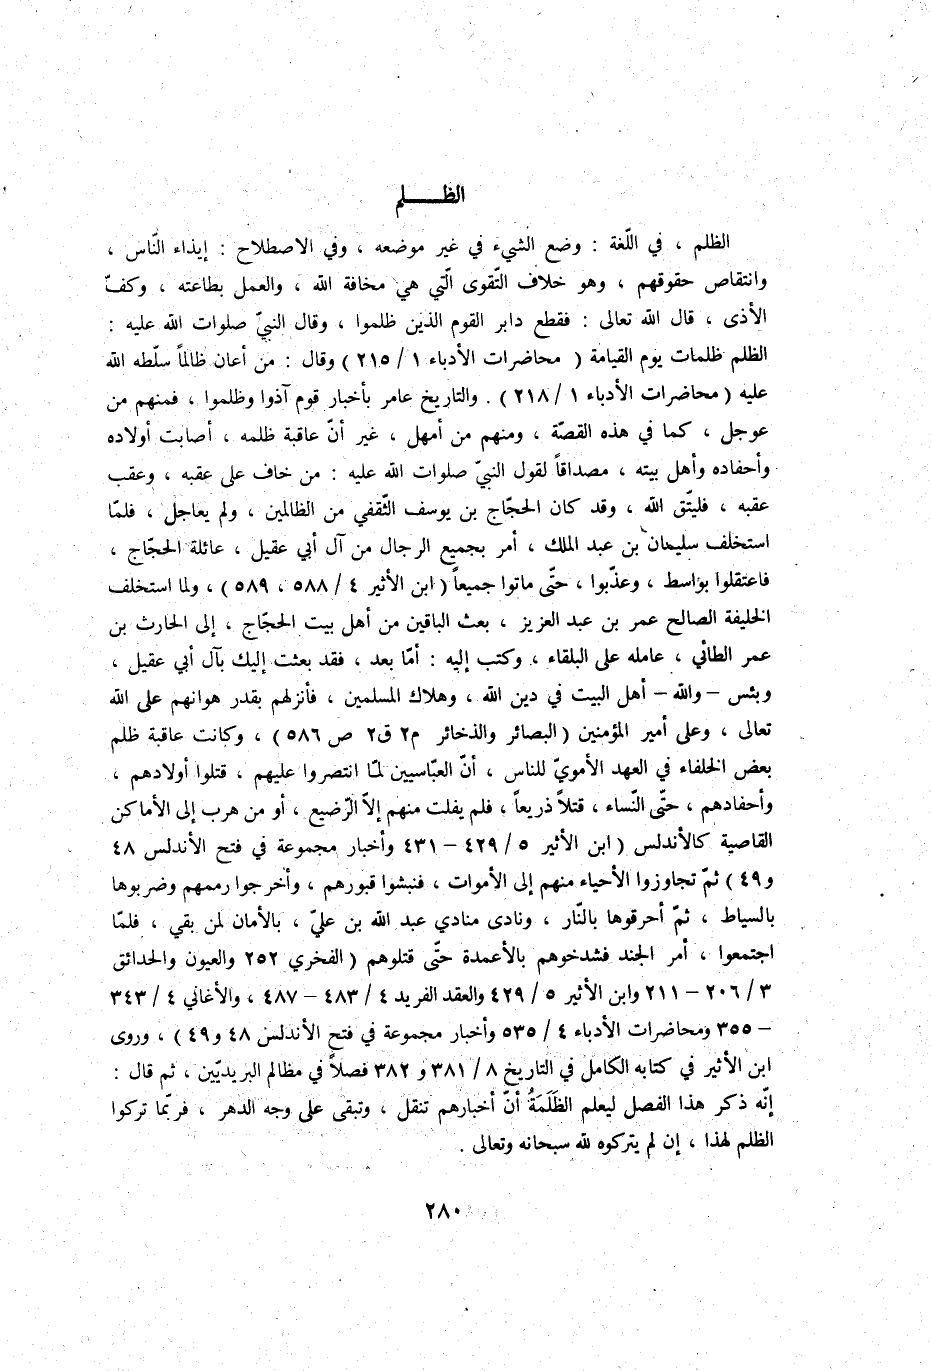 الظـــــلم
الظلم ، في اللّغة : وضع الشيء في غير موضعه ، وفي الاصطلاح : إيذاء النّاس ،
وانتقاص حقوقهم ، وهو خلاف التّقوى الّتي هي مخافة الله ، والعمل بطاعته ، وكفّ
الأذى ، قال الله تعالى : فقطع دابر القوم الذين ظلموا ، وقال النبيّ صلوات الله عليه :
الظلم ظلمات يوم القيامة ( محاضرات الأدباء ١ / ٢١٥ ) وقال : من أعان ظالماً سلّطه الله
عليه ( محاضرات الأدباء ١ / ٢١٨ ) . والتاريخ عامر بأخبار قوم آذوا وظلموا ، فمنهم من
عوجل ، كما في هذه القصّة ، ومنهم من أمهل ، غير أنّ عاقبة ظلمه ، أصابت أولاده
وأحفاده وأهل بيته ، مصداقاً لقول النبيّ صلوات الله عليه : من خاف على عقبه ، وعقب
عقبه ، فليتّق الله ، وقد كان الحجّاج بن يوسف الثّقفي من الظالمين ، ولم يعاجل ، فلمّا
استخلف سليمان بن عبد الملك ، أمر بجميع الرجال من آل أبي عقيل ، عائلة الحجّاج ،
فاعتقلوا بواسط ، وعذّبوا ، حتّى ماتوا جميعاً ( ابن الأثير ٤ / ٥٨٨ ، ٥٨٩ ) ، ولما استخلف
الخليفة الصالح عمر بن عبد العزيز ، بعث الباقين من أهل بيت الحجّاج ، إلى الحارث بن
عمر الطائي ، عامله على البلقاء ، وكتب إليه : أمّا بعد ، فقد بعثت إليك بآل أبي عقيل ،
وبئس - والله - أهل البيت في دين الله ، وهلاك المسلمين ، فأنزلهم بقدر هوانهم على الله
تعالى ، وعلى أمير المؤمنين ( البصائر والذخائر م٢ ق٢ ص ٥٨٦ ) ، وكانت عاقبة ظلم
بعض الخلفاء في العهد الأمويّ للناس ، أنّ العبّاسيين لمّا انتصروا عليهم ، قتلوا أولادهم ،
وأحفادهم ، حتّى النّساء ، قتلاً ذريعاً ، فلم يفلت منهم إلاّ الرّضيع ، أو من هرب إلى الأماكن
القاصية كالأندلس ( ابن الأثير ٥ / ٤٢٩ - ٤٣١ وأخبار مجموعة في فتح الأندلس ٤٨
و٤٩ ) ثمّ تجاوزوا الأحياء منهم إلى الأموات ، فنبشوا قبورهم ، وأخرجوا رممهم وضربوها
بالسياط ، ثمّ أحرقوها بالنّار ، ونادى منادي عبد الله بن عليّ ، بالأمان لمن بقي ، فلمّا
اجتمعوا ، أمر الجند فشدخوهم بالأعمدة حتّى قتلوهم ( الفخري ٢٥٢ والعيون والحدائق
٣ / ٢٠٦ - ٢١١ وابن الأثير ٥ / ٤٢٩ والعقد الفريد ٤ / ٤٨٣ - ٤٨٧ ، والأغاني ٤ / ٣٤٣
- ٣٥٥ ومحاضرات الأدباء ٤ / ٥٣٥ وأخبار مجموعة في فتح الأندلس ٤٨ و٤٩ ) ، وروى
ابن الأثير في كتابه الكامل في التاريخ ٨ / ٣٨١ و ٣٨٢ فصلاً في مظالم البريديّين ، ثم قال :
إنّه ذكر هذا الفصل ليعلم الظَلَمَةُ أنّ أخبارهم تنقل ، وتبقى على وجه الدهر ، فربّما تركوا
الظلم لهذا ، إن لم يتركوه لله سبحانه وتعالى .
٢٨٠